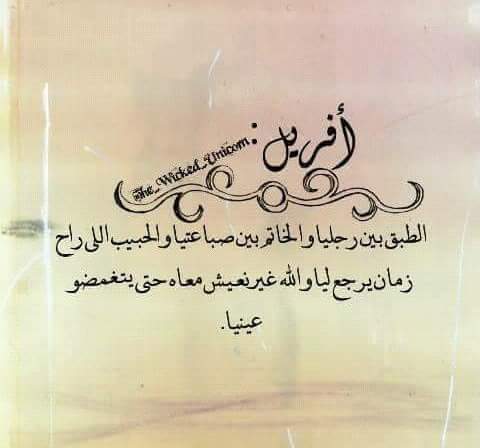 أفريل :
The_Wicked_Unicorn
الطبق بين رجليا و الخاتم بين صباعتيا و الحبيب اللي راح
زمان يرجع ليا و الله غير نعيش معاه حتى يتغمضو
عينيا.